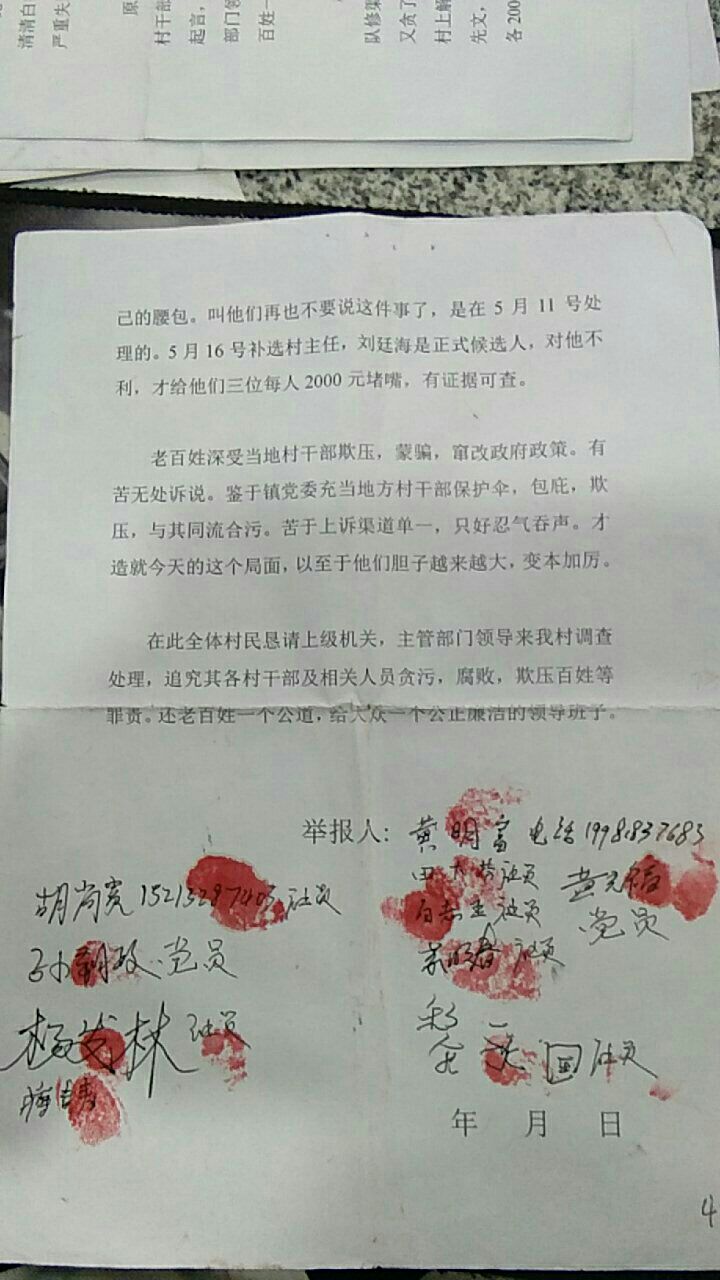 清清白
严重失
原
村干部
起言，
部门领
百姓一
队修渠
又贪了
村上解
先文，
各 200
己的腰包。叫他们再也不要说这件事了，是在 5 月 11 号处
理的。5 月 16 号补选村主任，刘廷海是正式候选人，对他不
利，才给他们三位每人 2000 元堵嘴，有证据可查。
老百姓深受当地村干部欺压，蒙骗，窜改政府政策。有
苦无处诉说。鉴于镇党委充当地方村干部保护伞，包庇，欺
压，与其同流合污。苦于上诉渠道单一，只好忍气吞声。才
造就今天的这个局面，以至于他们胆子越来越大，变本加厉。
在此全体村民恳请上级机关，主管部门领导来我村调查
处理，追究其各村干部及相关人员贪污，腐败，欺压百姓等
罪责。还老百姓一个公道，给大众一个公正廉洁的领导班子。
举报人: 黄明富 电话 1998837683
胡尚宽 15213297403 社员
社员
社员
党员
社员
党员
杨发林 社员
社员
年 月 日
4